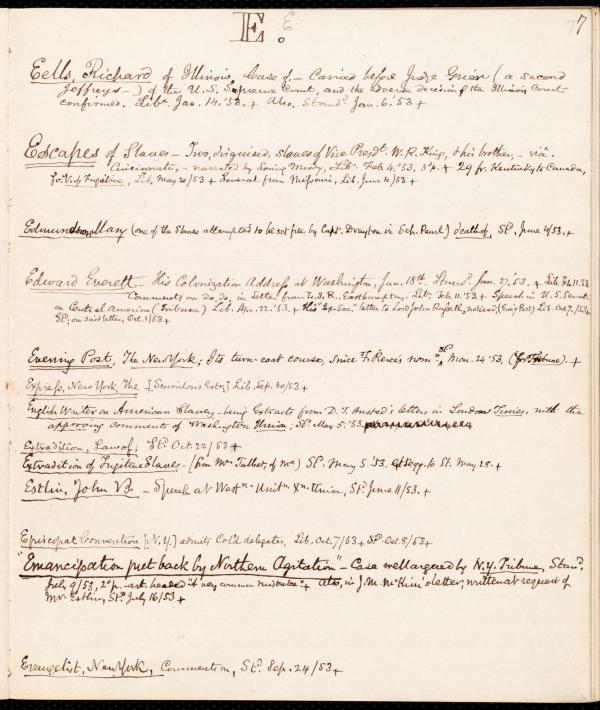 E. E 77
Eells, Richard of Illinois, Case of,— Carried before Judge Grier (a second
Jeffreys—) of the U.S. Supreme Court, and the adverse decision of the Illinois Court
confirmed. Libr. Jan. 14. '53. + Also, Strand. Jan. 6. '53 +
Escapes of Slaves — Two, disguised, slaves of Vice Presdt. W. R. King, & his brother, — via
Cincinnati, — narrated by Loring Moody, Libr. Feb. 4. '53, 3d p. + 29 fr. Kentucky to Canada,
fr. V. of Fugitive, Lib. May 20/53 + Several from Missouri, Lib. June 10/53 +
Edmundson, Mary (one of the Slaves attempted to be set free by Capt. Drayton in Sch. Pearl) death of, St. June 4/53. +
Edward Everett. His Colonization Address at Washington, Jan. 18th Stand. Jan. 27, '53. + Lib. Feb. 11. 53
Comments on do, do, in Letter from Easthampton. Lib. Feb. 11. '53 + Speech in U.S. Senate
on Central America (Tribune) Lib. Apr. 22. '53. + His "Ex-Sec." letter to Lord John Russell, noticed, (Eve'g Post) Lib. Oct. 7/53+
St; on said letter, Oct. 1/53 +
Evening Post, The New York; Its turn-coat course, since F. Pierce's nomn. Stan. 24 '53, (fr. Tribune). +
Express, New York, The [Scurrilous Extr.] Lib. Sep. 30/53 +
English Writer on American Slavery — being Extracts from D. T. Ansted's letters in London Times, with the
approving comments of Washington Union; St. May 5, '53
Extradition, Law of; St. Oct. 22/53 +
Extradition of Fugitive Slaves. (from Mr. Talbot, of Me) St. May 5. '53. St. May 28. +
Estlin, John B. — Speech at Westn. Unitn. Union, St. June 11/53. +
Episcopal Convention [N.Y.] admits Cold delegates, Lib. Oct. 7/53 + St. Oct. 8/53 +
"Emancipation put back by Northern Agitation" — Case well argued by N.Y. Tribune, Stand.
July 9/53, 2d p.— art. headed "A very common mistake" + Also, in J. M. McKim's letter, written at request of
Mr. Estlin, St. July 16/53 +
Evangelist, New York, Comments on, St. Sep. 24/53 +